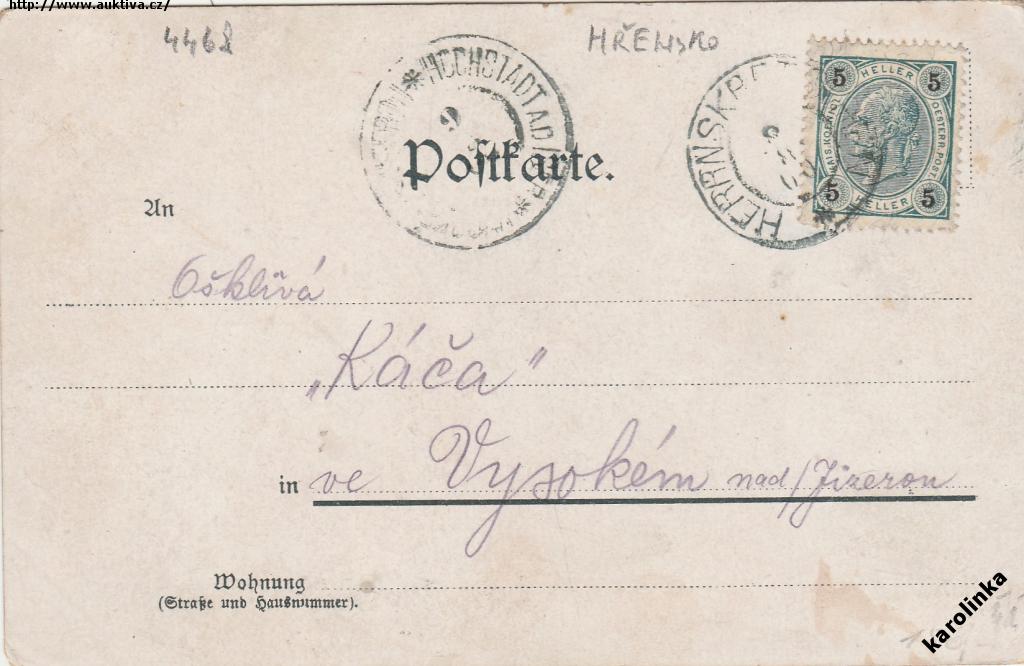 http://www.auktiva.cz/
4468
HŘENSKO
HOCHSTADT A D ISER
9
HERRNSKRET
5 HELLER 5
KAIS. KOENIGL. OESTERR. POST
5 HELLER 5
Postkarte.
An
Ošklivá
„Káča"
in ve Vysokém nad/Jizerou
Wohnung
(Straße und Hausnummer).
karolinka